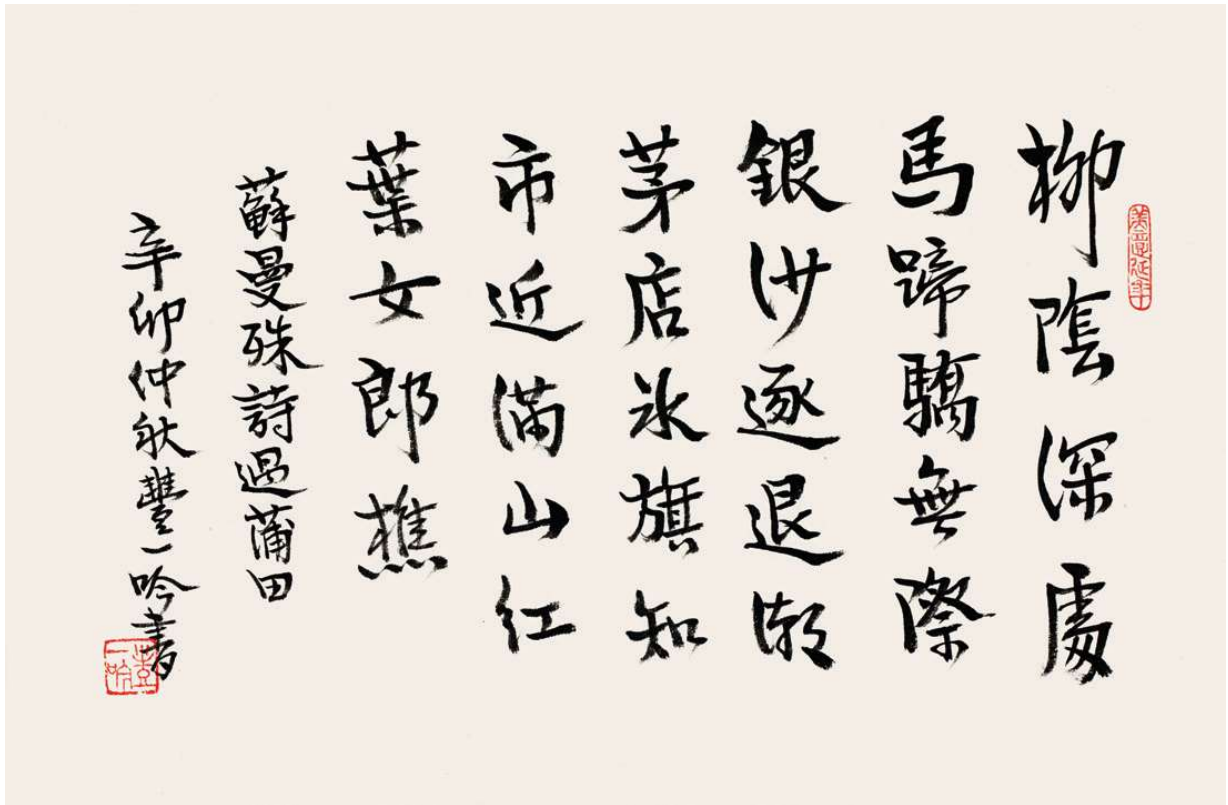 美意延年
柳陰深處
馬蹄驕無際
銀沙逐退潮
茅店冰旗知
市近滿山紅
葉女郎樵
蘇曼殊詩過蒲田
辛卯仲秋豐一吟書
豐一吟